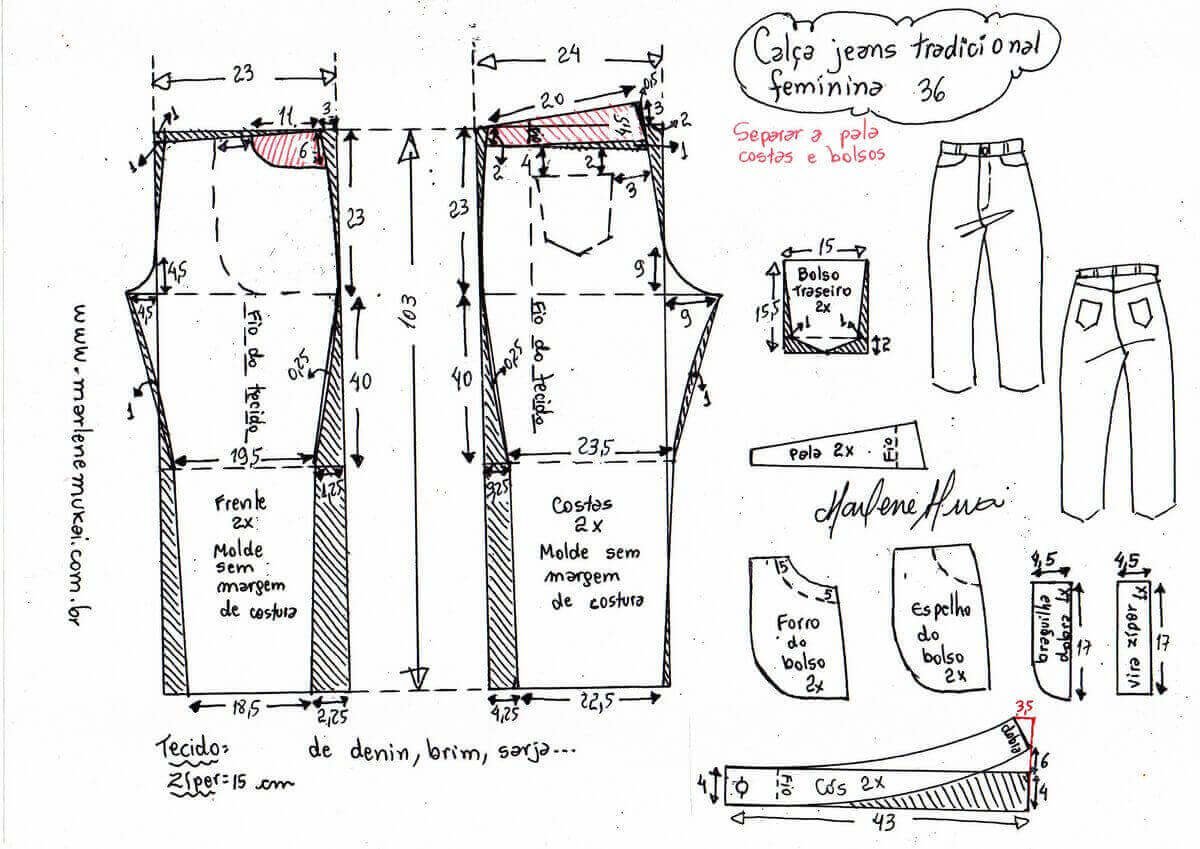 Calça jeans tradicional
feminina 36
Separar a pala
costas e bolsos
23
11
3
1
1
6
23
4,5
4,5
Fio do tecido
0,25
40
1
19,5
1,25
Frente
2x
Molde
sem
margem
de costura
18,5
2,25
103
24
20
0,5
3
2
4,5
1
2
4
2
3
23
9
9
Fio do tecido
0,25
40
1
23,5
3,25
Costas
2x
Molde sem
margem
de costura
4,25
22,5
15
Bolso
traseiro
2x
15,5
1
1
2
Pala 2x
Fio
Marlene Mukai
5
5
Forro
do
bolso
2x
Espelho
do
bolso
2x
4,5
braguilha
dobra 1x
17
4,5
vira zíper 1x
17
3,5
dobra
6
4
4
Fio
Cós 2x
43
www.marlenemukai.com.br
Tecido: de denin, brim, sarja...
Zíper=15 cm